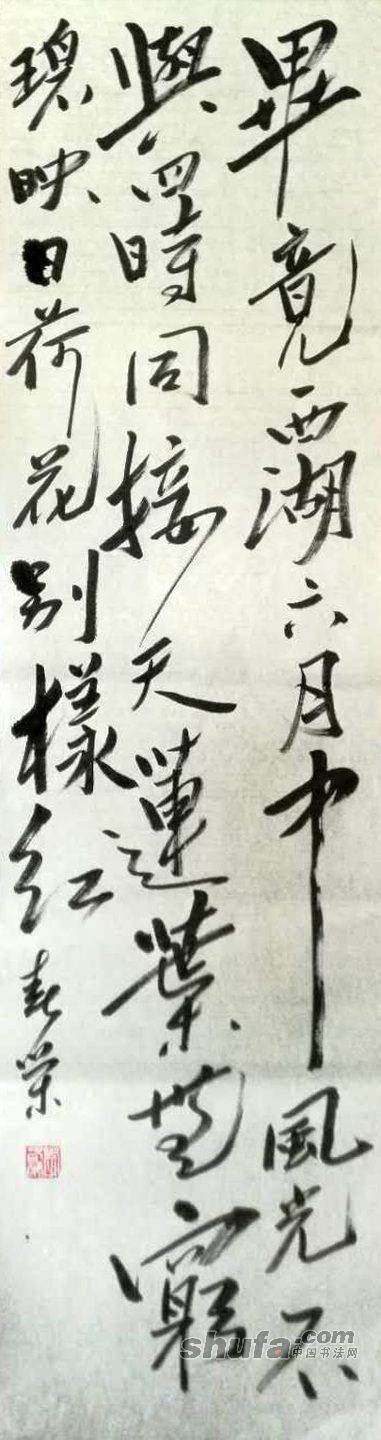 畢竟西湖六月中風光不
與四時同接天蓮葉無窮
碧映日荷花别樣紅 春榮
shufa.com
中国书法网